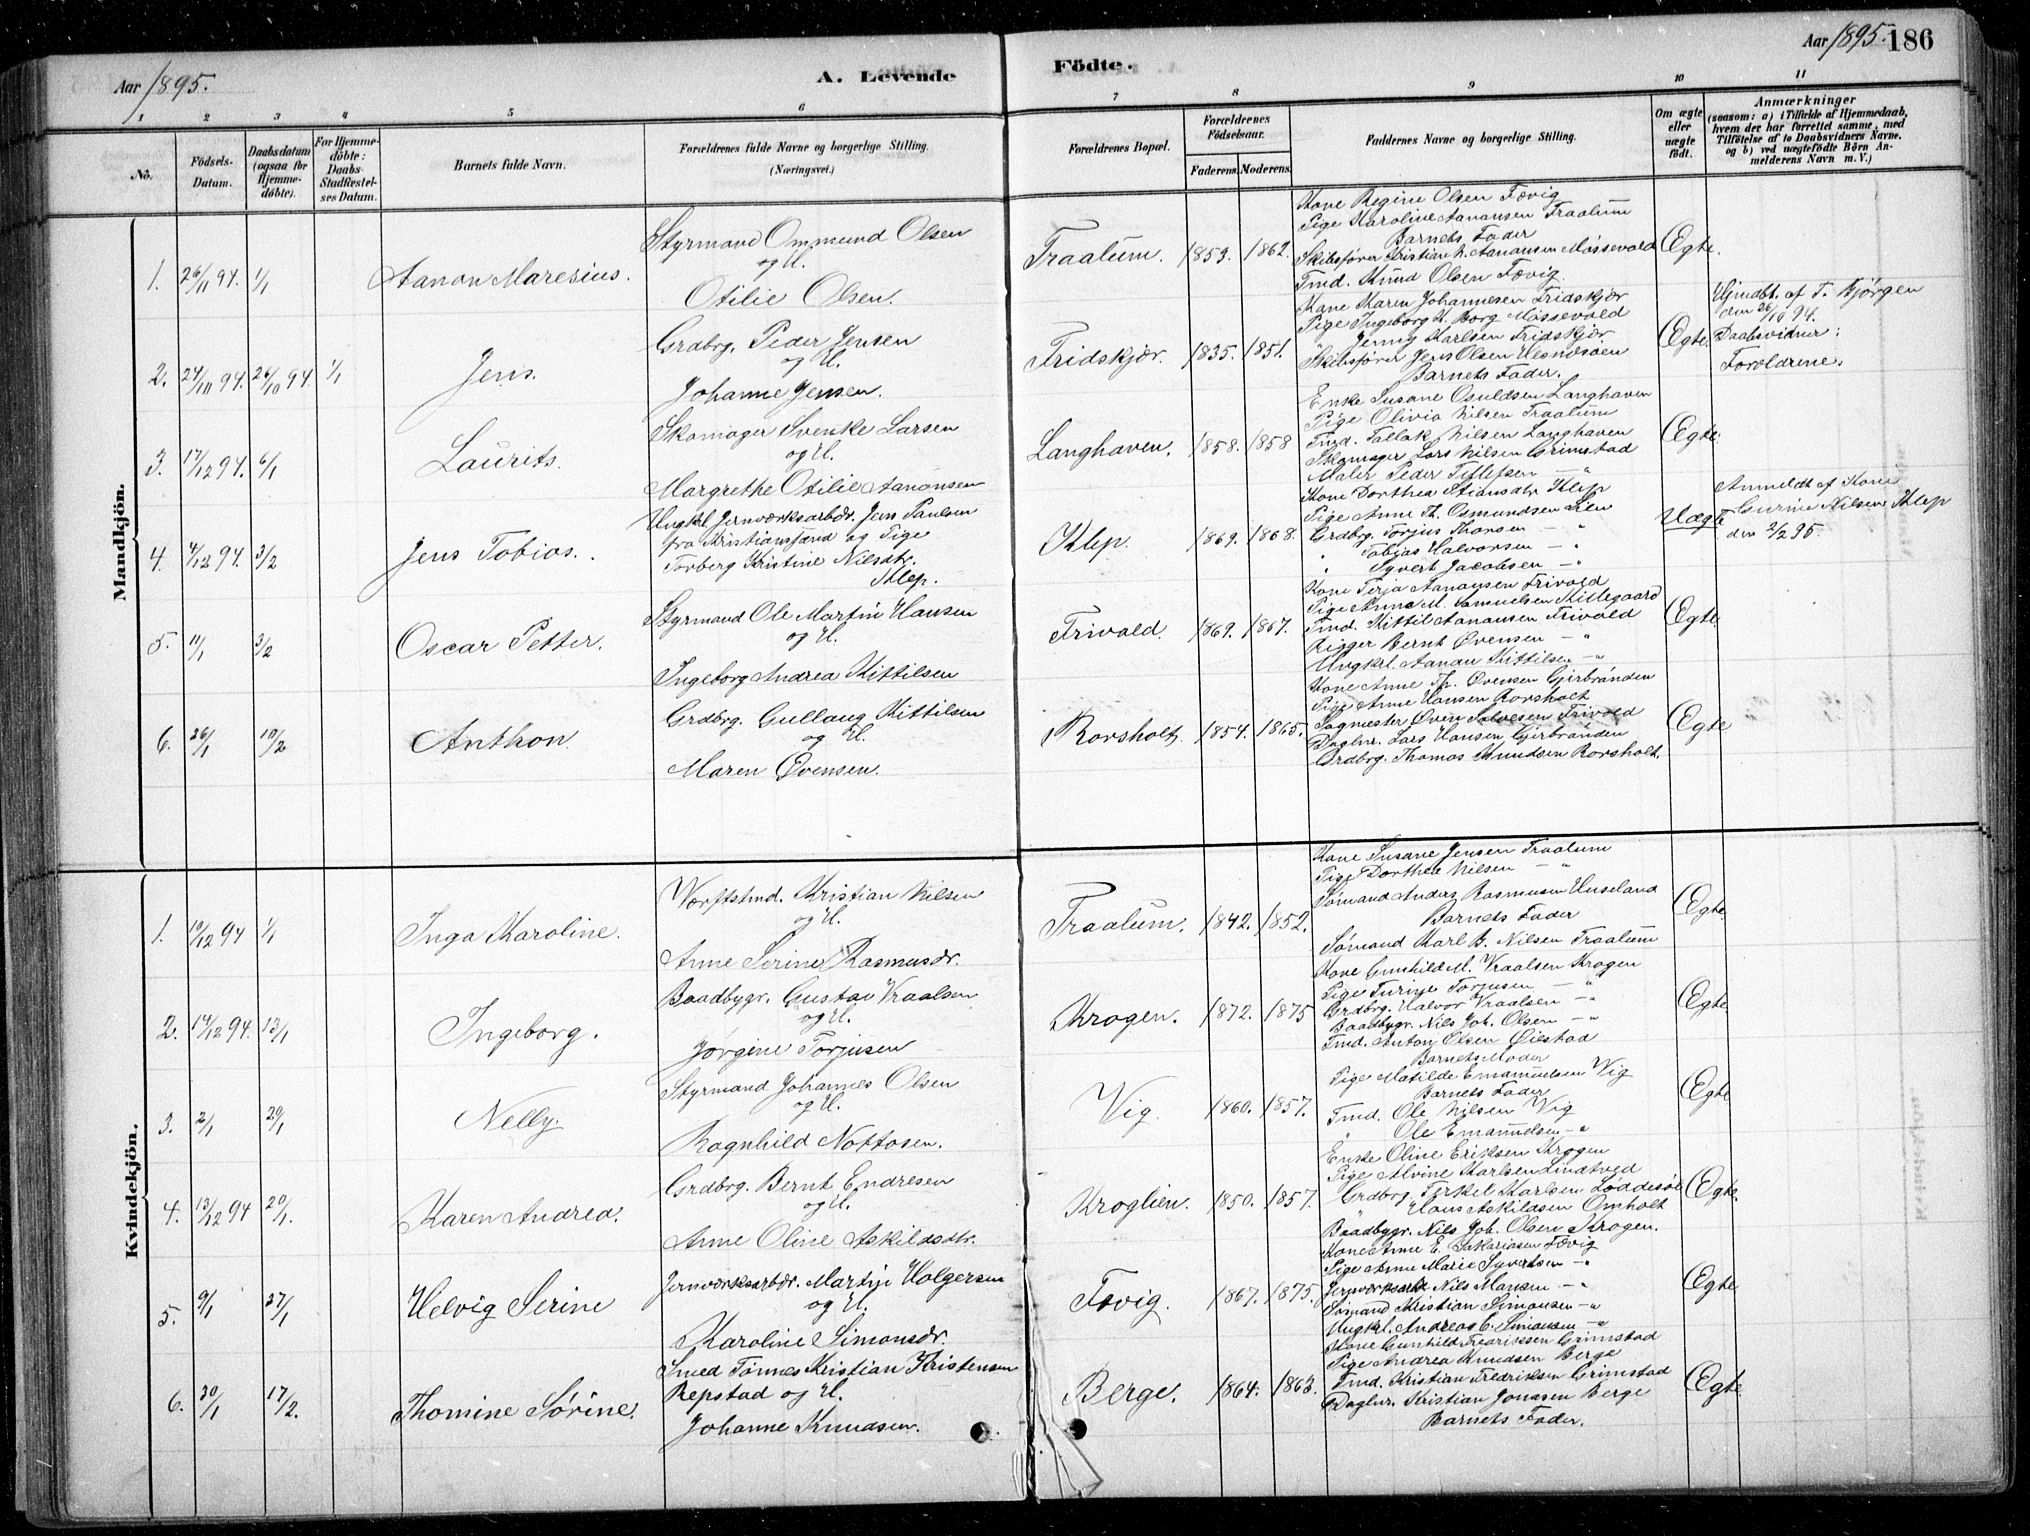 Aar 1895.
A. Levende
Födte.
Aar 1895. 186
1 2 3 4 5 6 7 8 9 10 11
No.
Födsels-Datum.
Daabsdatum (ogsaa för Hjemmedöbte).
For Hjemmedöbte: Daabs-Stadfæstelses Datum.
Barnets fulde Navn.
Forældrenes fulde Navne og borgerlige Stilling. (Næringsvei.)
Forældrenes Bopæl.
Forældrenes Födselsaar.
Faderens. Moderens.
Faddernes Navne og borgerlige Stilling.
Om ægte eller uægte födt.
Anmærkninger
(saasom: a) i Tilfælde af Hjemmedaab, hvem der har forrettet samme, med Tilföielse af to Daabsvidners Navne. og b) ved uægtefödte Börn Anmelderens Navn m. V.)
Mandkjön.
1. 26/11 94. 1/1 Aanon Maresius.
Styrmand Ommund Olsen
og H.
Otilie Olsen.
Traalum. 1853. 1862.
Kone Regine Olsen Fævig
Pige Karoline Aanonsen Traalum
Barnets Fader
Skibsfører Kristian N. Aanonsen Møssevold
Tmd. Knud Olsen Fævig.
Egte.
2. 24/10 94. 26/10 94. 1/1 Jens.
Grdbrg. Peder Jensen
og H.
Johanne Jensen.
Fridskjær. 1835. 1851.
Kone Karen Johannesen Fridskjær
Pige Ingeborg K. Borg Møssevold
" Jenny Karlsen Fridskjær.
Skibsfører Jens Olsen Hesnesøen
Barnets Fader.
Egte.
Hjmdbt. af T. Bjørgen
den 26/10 94.
Daabsvidner:
Forældrene.
3. 17/12 94. 6/1 Laurits.
Skomager Svenke Larsen
og H.
Margrethe Otilie Aanonsen
Langhaven. 1858. 1858
Enke Susane Osuldsen Langhaven
Pige Olivia Nilsen Traalum
Tmd. Tallak Nilsen Langhaven
Skomager Lars Nilsen Grimstad
Maler Peder Tellefsen — "
Egte.
4. 4/12 94. 3/2 Jens Tobias.
Ungkl. Jernværksarbdr. Jens Paulsen
fra Kristianssand og Pige
Torberg Kristine Nilsdtr.
Klep.
Klep. 1869. 1868.
Kone Dorthea Stiansdtr. Klep
Pige Anne Th. Osmundsen Lien
Grdbrg. Torjus Thorsen "
" Tobias Halvorsen — "
" Syvert Jacobsen — "
Uægte
Anmeldt af Kone
Gurine Nilsen Klep
den 2/2 95.
5. 11/1 3/2 Oscar Petter.
Styrmand Ole Martin Hansen
og H.
Ingeborg Andrea Kittilsen
Frivold. 1869. 1867.
Kone Terja Aanonsen Frivold
Pige Anne M. Samuelsen Killegaard
Tmd. Kittil Aanonsen Frivold
Rigger Bernt Øvensen — "
Ungkrl. Aanon Kittilsen — "
Egte
6. 26/1 10/2 Anthon
Grdbrg. Gullaug Kittilsen
og H.
Maren Øvensen.
Rorsholt. 1854. 1865.
Kone Anne Th. Øvensen Girbrønden
Pige Anne Hansen Rorsholt
Sagmester Øven Salvesen Frivold
Daglnr. Lars Hansen Girbrønden
Grdbrg. Thomas Knudsen Rorsholt.
Egte
Kvindekjön.
1. 10/12 94 1/1 Inga Karoline.
Værftstmd. Kristian Nilsen
og H.
Anne Serine Rasmusdr.
Traalum. 1842. 1852.
Kone Susane Jensen Traalum
Pige Dorthea Nilsen — "
Sømand Anders Rasmusen Huseland
Barnets Fader
Sømand Karl B. Nilsen Traalum
Egte.
2. 14/12 94. 13/1 Ingeborg.
Baadbygr. Gustav Vraalsen
og H.
Jorgine Torjusen
Krogen. 1872. 1875
Kone Gunhild M. Vraalsen Krogen
Pige Turine Torjusen — "
Grdbrg. Halvor Vraalsen — "
Baadbygr. Nils Joh. Olsen — "
Tmd. Anton Olsen Øiestad
Egte
3. 2/1 20/1 Nelly.
Styrmand Johannes Olsen
og H.
Ragnhild Nottosen.
Vig. 1860. 1857.
Barnets Moder
Pige Matilde Emanuelsen Vig
Barnets Fader
Tmd. Ole Nilsen Vig
" Ole Emanuelsen — "
Egte
4. 13/12 94 20/1. Karen Andrea.
Grdbrg. Bernt Endresen
og H.
Anne Oline Askildsdtr.
Kroglien. 1850. 1857.
Enke Oline Eriksen Krogen
Pige Alvine Karlsen Lindtved
Grdbrg. Terkel Karlsen Løddesøl
" Hans Askildsen Omholt
Baadbygr. Nils Joh. Olsen Krogen.
Egte.
5. 9/1 27/1 Helvig Serine
Jernværksarbdr. Martin Holgersen
og H.
Karoline Simonsdr.
Fævig. 1867. 1875.
Kone Anne E. Sakariasen Fævig
Pige Anne Marie Syvertsen — "
Jernværksarb. Nils Monsen — "
Sømand Kristian Simonsen — "
Ungkl. Andreas C. Simonsen — "
Egte
6. 30/1 17/2. Thomine Sørine.
Smed Tønnes Kristian Kristensen
Repstad og H.
Johanne Knudsen.
Berge. 1864. 1863.
Kone Gunhild Fredriksen Grimstad
Pige Andrea Knudsen Berge
Tmd. Kristian Fredriksen Grimstad
Daglnr. Kristian Jonasen Berge
Barnets Fader.
Egte